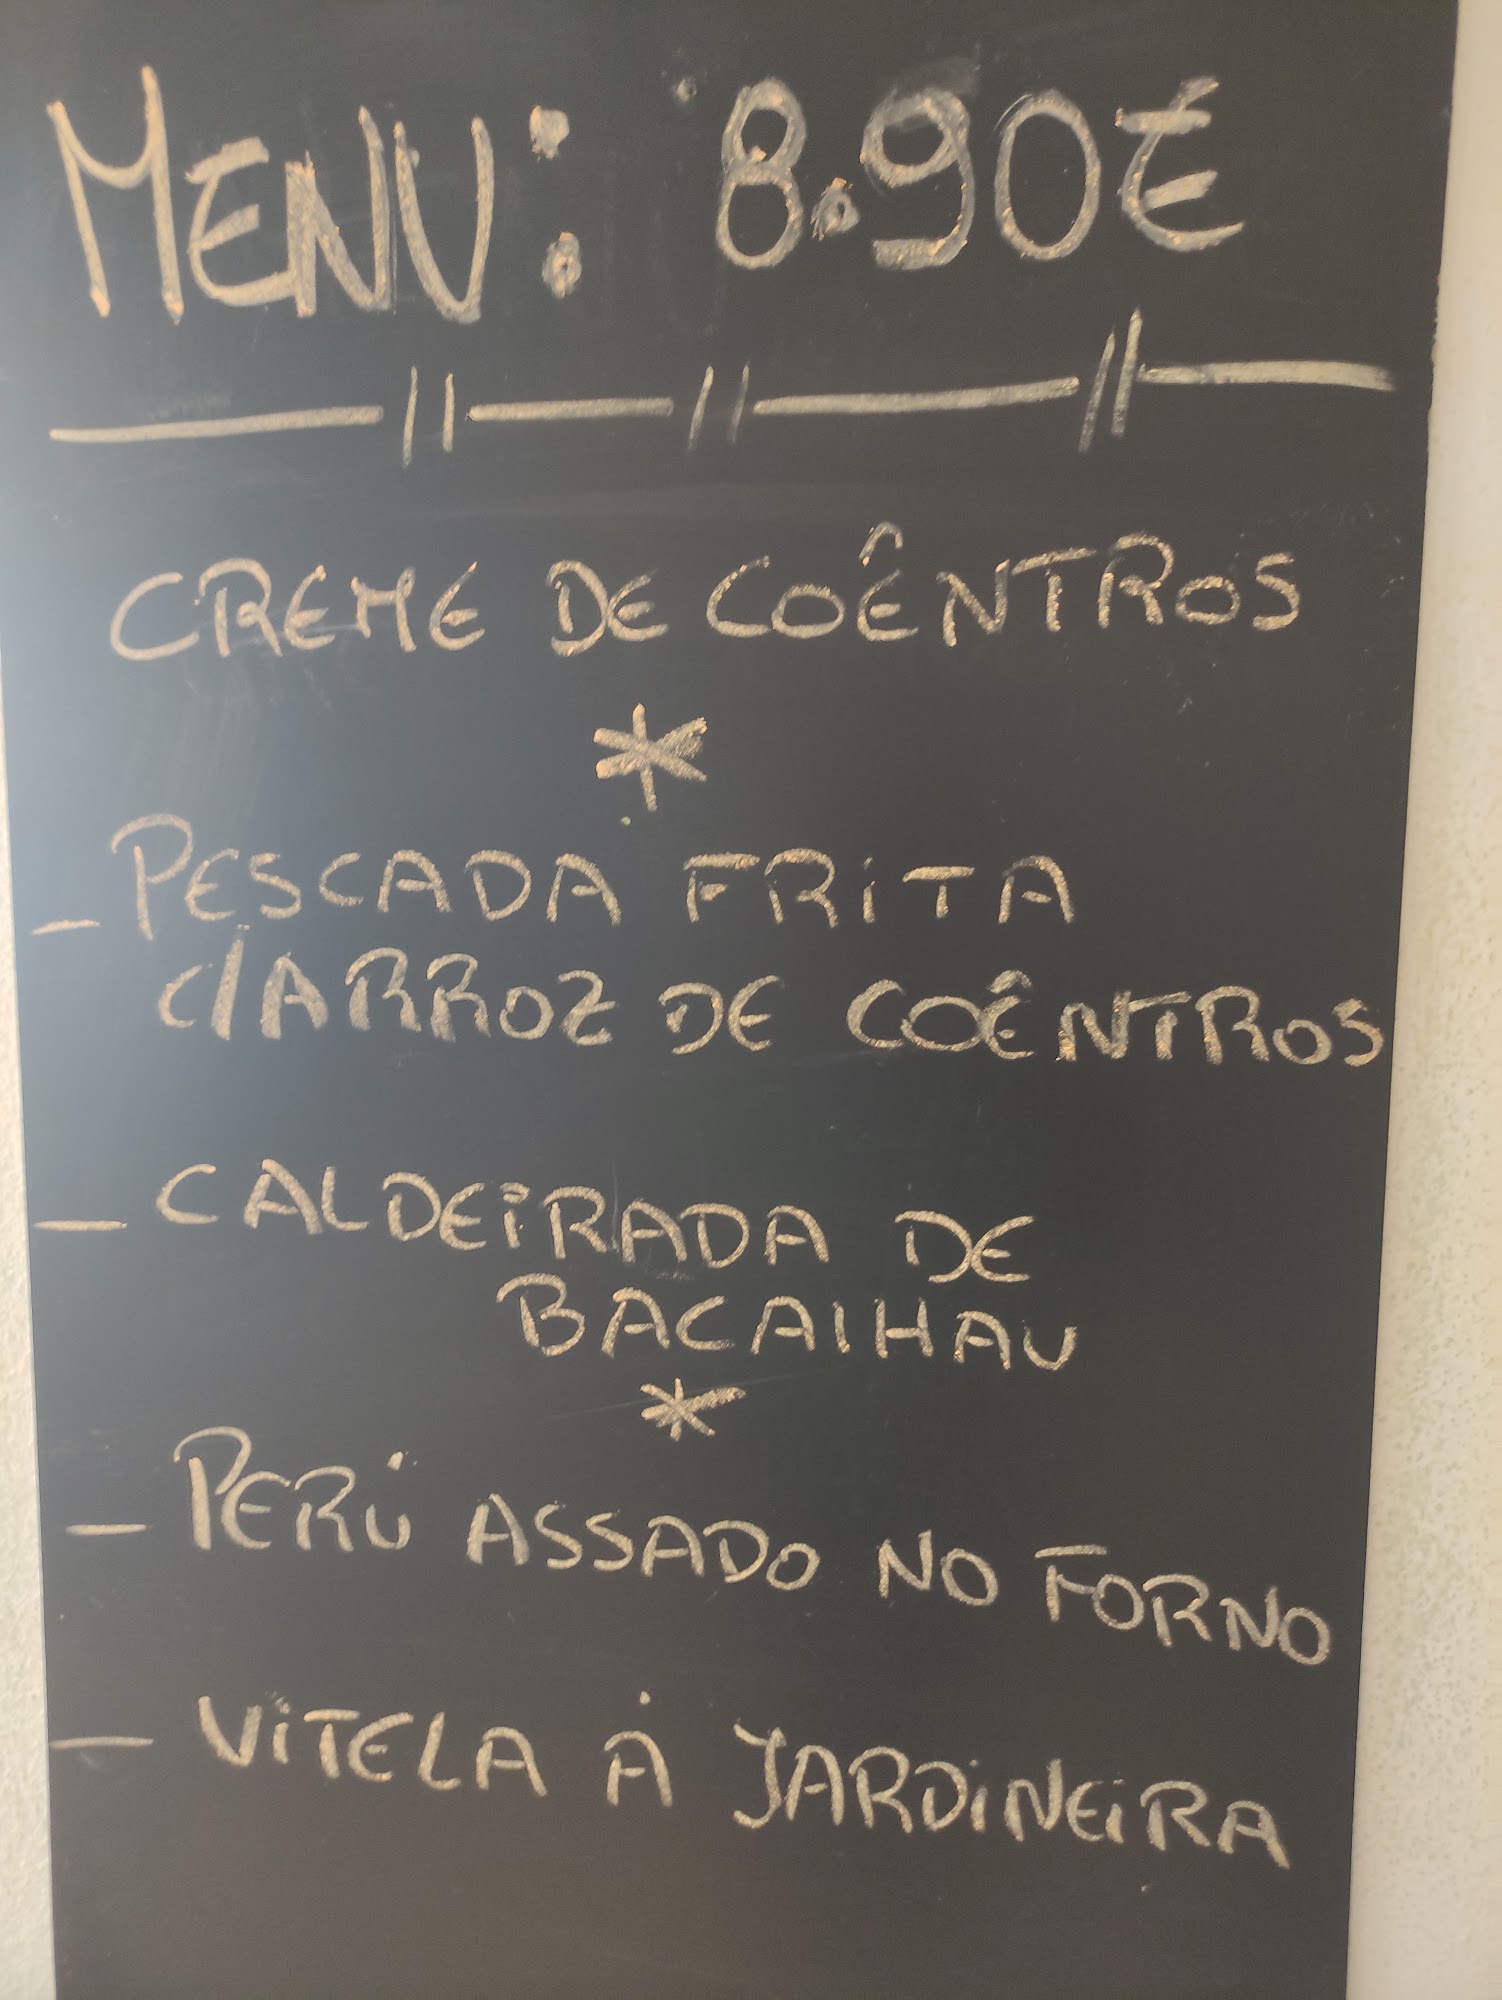 MENU: 8.90€
CREME DE COÊNTROS
*
- PESCADA FRITA
C/ARROZ DE COÊNTROS
- CALDEIRADA DE
BACAlHAU
*
- PERÚ ASSADO NO FORNO
- VITELA À JARDINEIRA